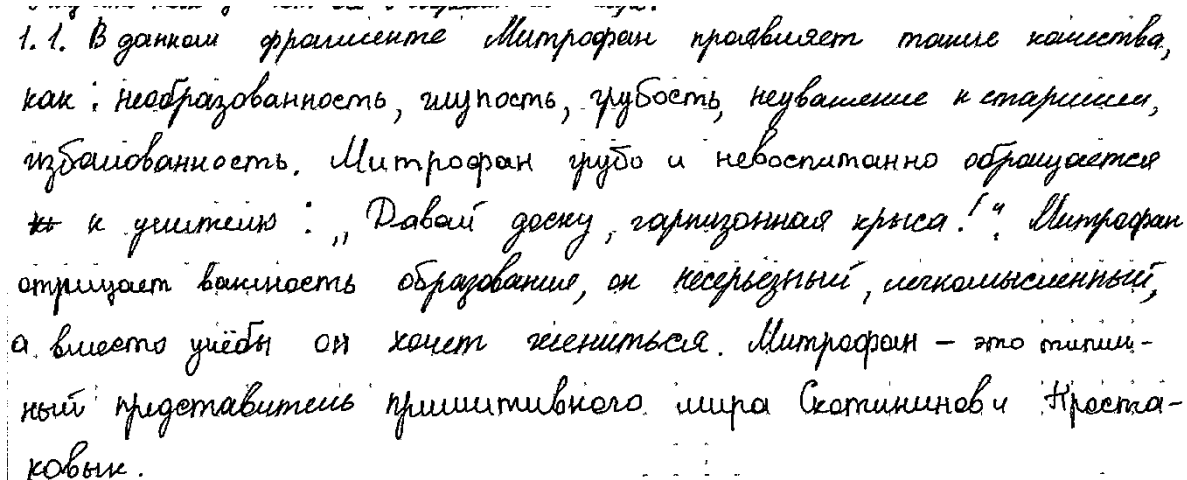 1.1. В данном фрагменте Митрофан проявляет такие качества,
как: необразованность, глупость, грубость, неуважение к старшим,
избалованность. Митрофан грубо и невоспитанно обращается
к учителю: „Давай доску, гарнизонная крыса!“. Митрофан
отрицает важность образования, он несерьёзный, легкомысленный,
а вместо учёбы он хочет жениться. Митрофан – это типич-
ный представитель примитивного мира Скотининов и Проста-
ковых.